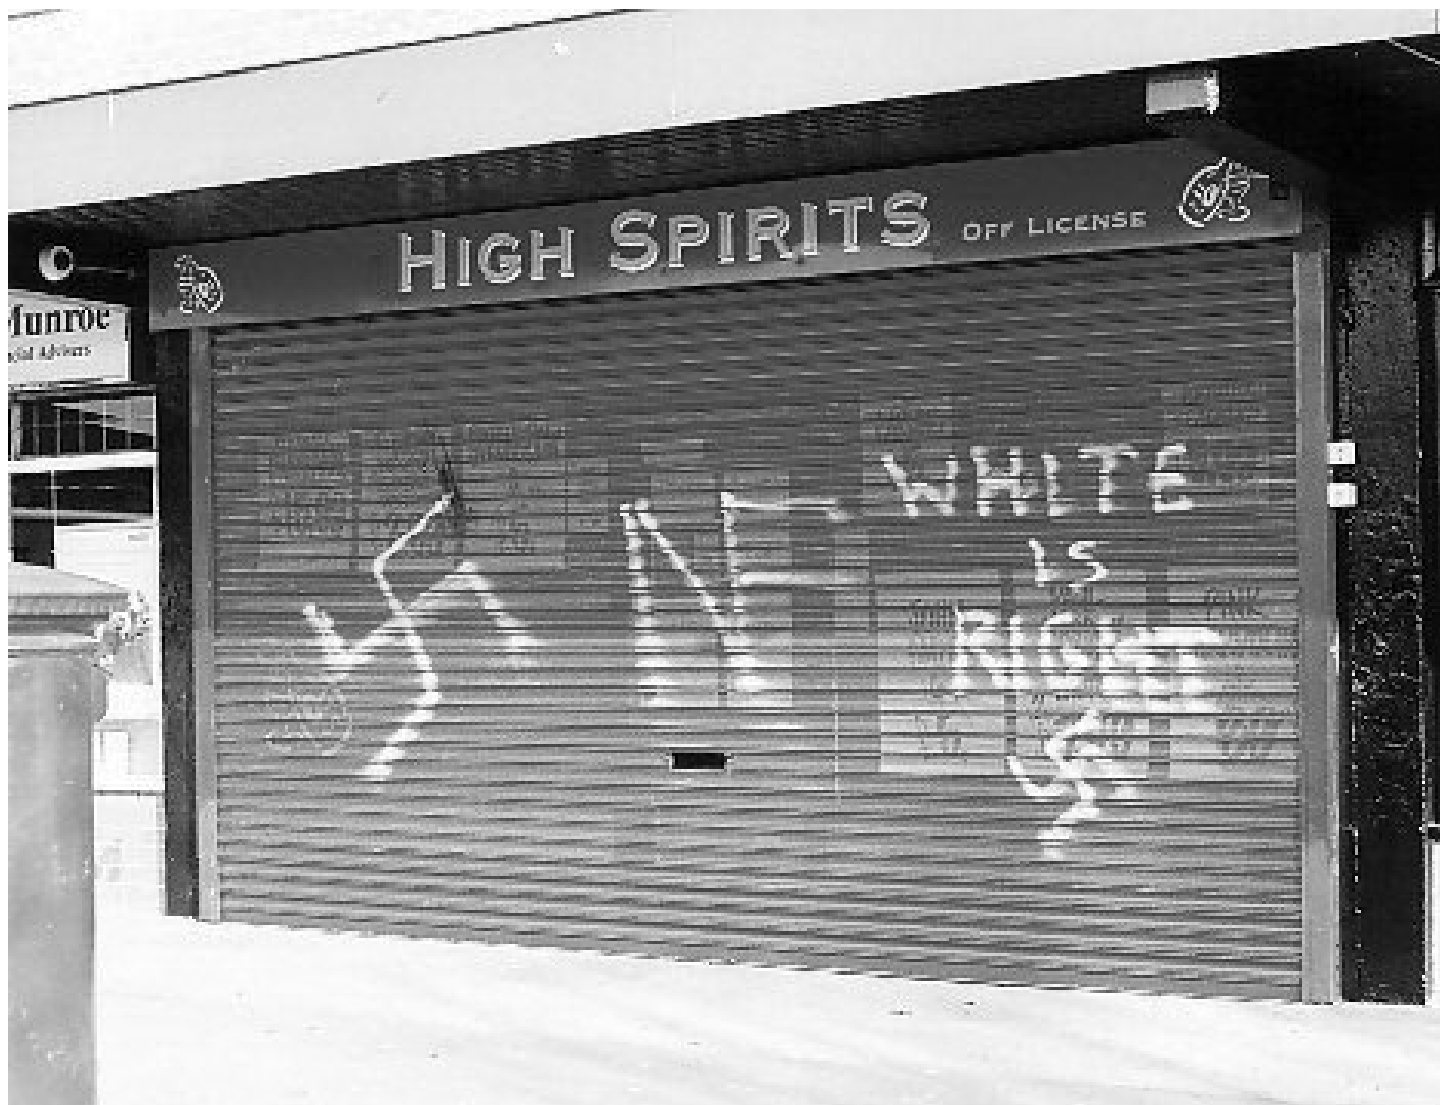 HIGH SPIRITS OFF LICENSE
Munroe
Advisers
NF
WHITE
IS
RIGHT
PINK